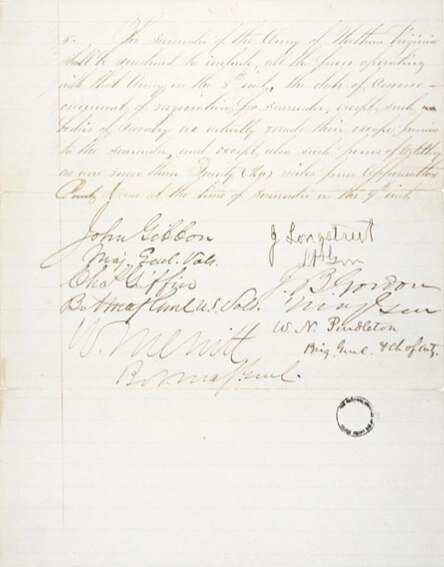 5. The surrender of the Army of Northern Virginia
shall be construed to include all the forces operating
with that Army on the 8th inst., the date of commen-
cement of negociation for surrender, except such
bodies of Cavalry as actually made their escape previous
to the surrender, and except also such pieces of Artillery
as were more than Twenty (20) miles from Appomattox
Court House at the time of surrender on the 9th inst.
John Gibbon
Maj. Genl. Vols.
Chas Griffin
Bvt Maj Genl U.S. Vols.
W. Merritt
Bvt Maj Genl.
J Longstreet
Lt Gen
J. B Gordon
Maj Gen
W. N. Pendleton
Brig. Genl. & Ch of Art.